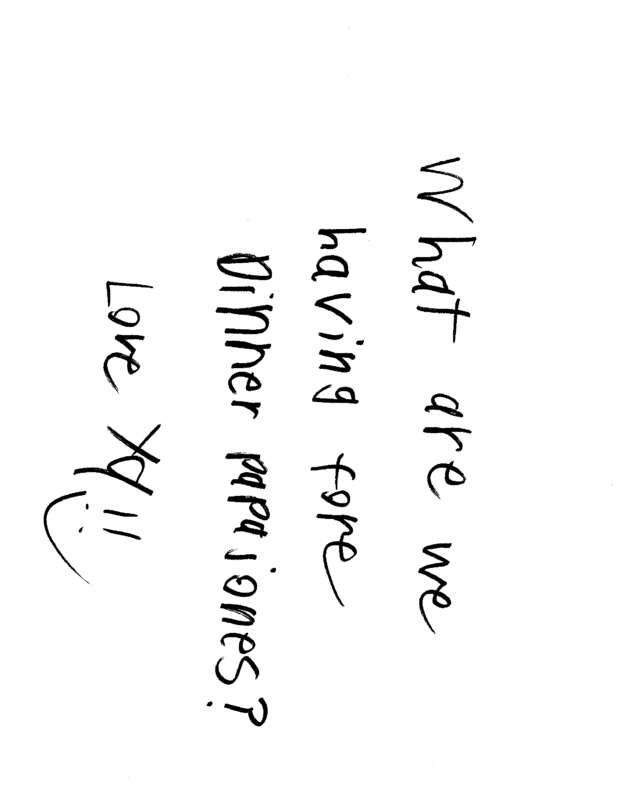 What are we
having fore
Dinner papaiones?
Love Ya!! :)